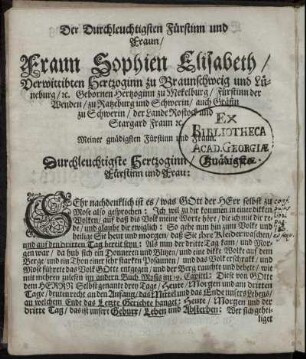 Der Durchleuchtigsten Fürstinn und
Fraun/
Fraun Sophien Elisabeth/
Verwittibten Hertzoginn zu Braunschweig und Lü-
neburg/ ꝛc. Gebornen Hertzoginn zu Mekelburg/ Fürstinn der
Wenden/ zu Ratzeburg und Schwerin/ auch Gräfin
zu Schwerin/ der Lande Rostock und
Stargard Fraun ꝛc.
Meiner gnädigsten Fürstinn und Fraun.
EX
BIBLIOTHECA
ACAD. GEORGIÆ
Durchleuchtigste Hertzoginn/ Gnädigste
Fürstinn und Frau:
Sehr nachdenklich ist es/ was GOtt der HErr selbst zu
Mose also gesprochen: Ich wil zu dir kommen in einer dikken
Wolken/ auf daß diß Volk meine Worte höre/ die ich mit dir re-
de/ und gläube dir ewiglich: So gehe nun hin zum Volk und
heilige Sie heut und morgen/ daß Sie ihre Kleider waschen/
und auf den dritten Tag bereit seyn: Als nun der dritte Tag kam/ und Mor-
gen war/ da hub sich ein Donnern und Blitzen/ und eine dikke Wolke auf dem
Berge/ und ein Thon einer sehr starken Posaunen/ und das Volk erschrakk/ und
Mose führete das Volk GOtt entgegen/ und der Berg rauchte und bebete/ wie
uns mehrers zulesen im andern Buch Mosis am 19. Capitel: Diese von GOtt
dem HERRN Selbst genante drey Tage/ Heute/ Morgen und am dritten
Tage/ deuten recht an den Anfang/ das Mittel und das Ende unsers Lebens/
an welchem Ende das Letzte Gerichte hanget: Heute/ Morgen und der
dritte Tag/ das ist unser Geburt/ Leben und Absterben: Wer sich geheiliget